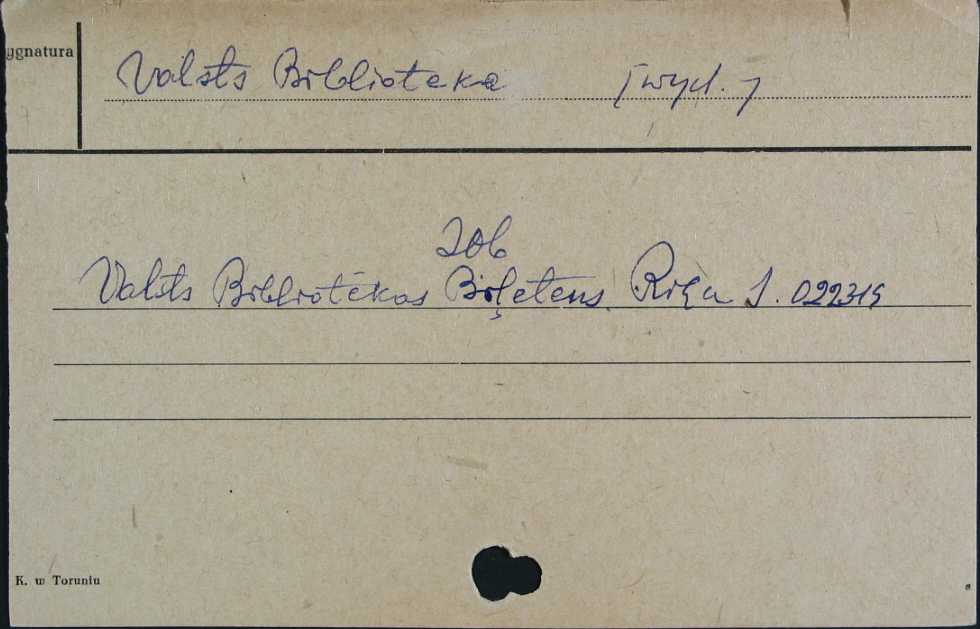 ygnatura
Valsts Biblioteka [wyd.]
Zob
Valsts Bibliotēkas Biļetens. Riga S. 022315
K. w Toruniu